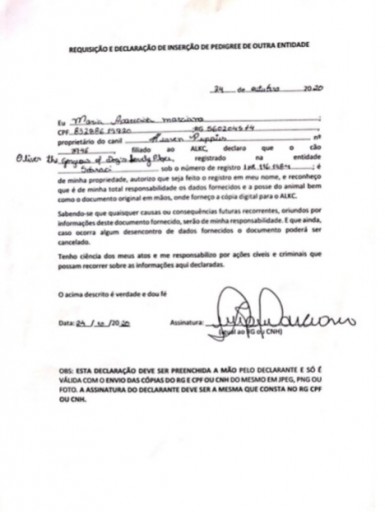 REQUISIÇÃO E DECLARAÇÃO DE INSERÇÃO DE PEDIGREE DE OUTRA ENTIDADE
24 de outubro 2020
Eu Maria marciana
CPF RG
proprietário do canil nº
filiado ao ALKC, declaro que o cão
Oliver the of Dog's Family Place, registrado na entidade
Sobraci sob o número de registro é
de minha propriedade, autorizo que seja feito o registro em meu nome, e reconheço
que é de minha total responsabilidade os dados fornecidos e a posse do animal bem
como o documento original em mãos, onde forneço a cópia digital para o ALKC.
Sabendo-se que quaisquer causas ou consequências futuras recorrentes, oriundos por
informações deste documento fornecido, serão de minha responsabilidade. E que ainda,
caso ocorra algum desencontro de dados fornecidos o documento poderá ser
cancelado.
Tenho ciência dos meus atos e me responsabilizo por ações cíveis e criminais que
possam recorrer sobre as informações aqui declaradas.
O acima descrito é verdade e dou fé
Data: 24 / 10 /2020 Assinatura:
(igual ao RG ou CNH)
OBS: ESTA DECLARAÇÃO DEVE SER PREENCHIDA A MÃO PELO DECLARANTE E SÓ É
VÁLIDA COM O ENVIO DAS CÓPIAS DO RG E CPF OU CNH DO MESMO EM JPEG, PNG OU
FOTO. A ASSINATURA DO DECLARANTE DEVE SER A MESMA QUE CONSTA NO RG CPF
OU CNH.